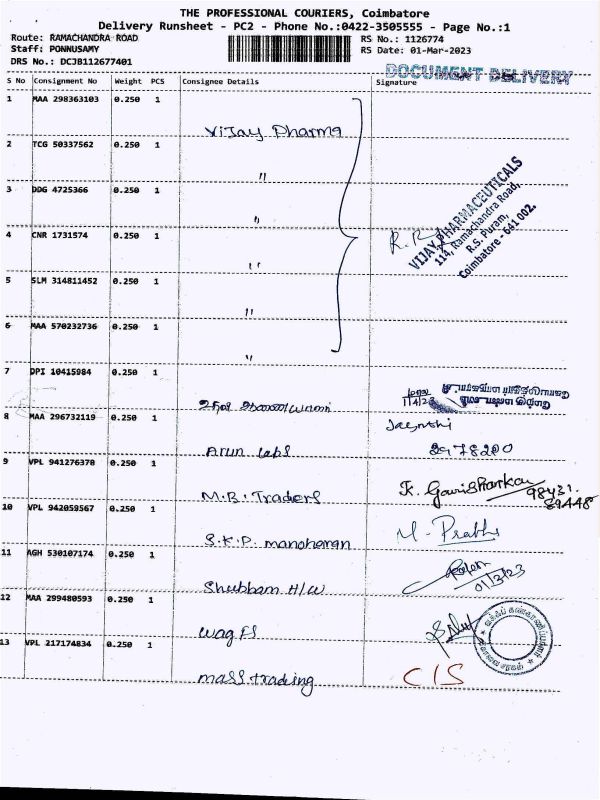 THE PROFESSIONAL COURIERS, Coimbatore
Delivery Runsheet - PC2 - Phone No.:0422-3505555 - Page No.:1
Route: RAMACHANDRA ROAD
RS No.: 1126774
Staff: PONNUSAMY
RS Date: 01-Mar-2023
DRS No.: DCJB112677401
DOCUMENT DELIVERY
S No Consignment No Weight PCS Consignee Details Signature
1 MAA 298363103 0.250 1
Vijay Pharma
2 TCG 50337562 0.250 1
"
3 DDG 4725366 0.250 1
"
4 CNR 1731574 0.250 1
"
5 SLM 314811452 0.250 1
"
6 MAA 570232736 0.250 1
"
VIJAY PHARMACEUTICALS
114, Ramachandra Road,
R.S. Puram,
Coimbatore - 641 002.
7 DPI 10415984 0.250 1
8 MAA 296732119 0.250 1
Jaenthi
Arun Labs 2978200
9 VPL 941276370 0.250 1
M.B. Traders K. Gowrishankar
98431
89448
10 VPL 942059567 0.250 1
S.K.P. manoharan M. Prabhu
11 AGH 530107174 0.250 1
Shubham H/W 01/3/23
12 MAA 299480593 0.250 1
wags
13 VPL 217174834 0.250 1
mass trading C/S